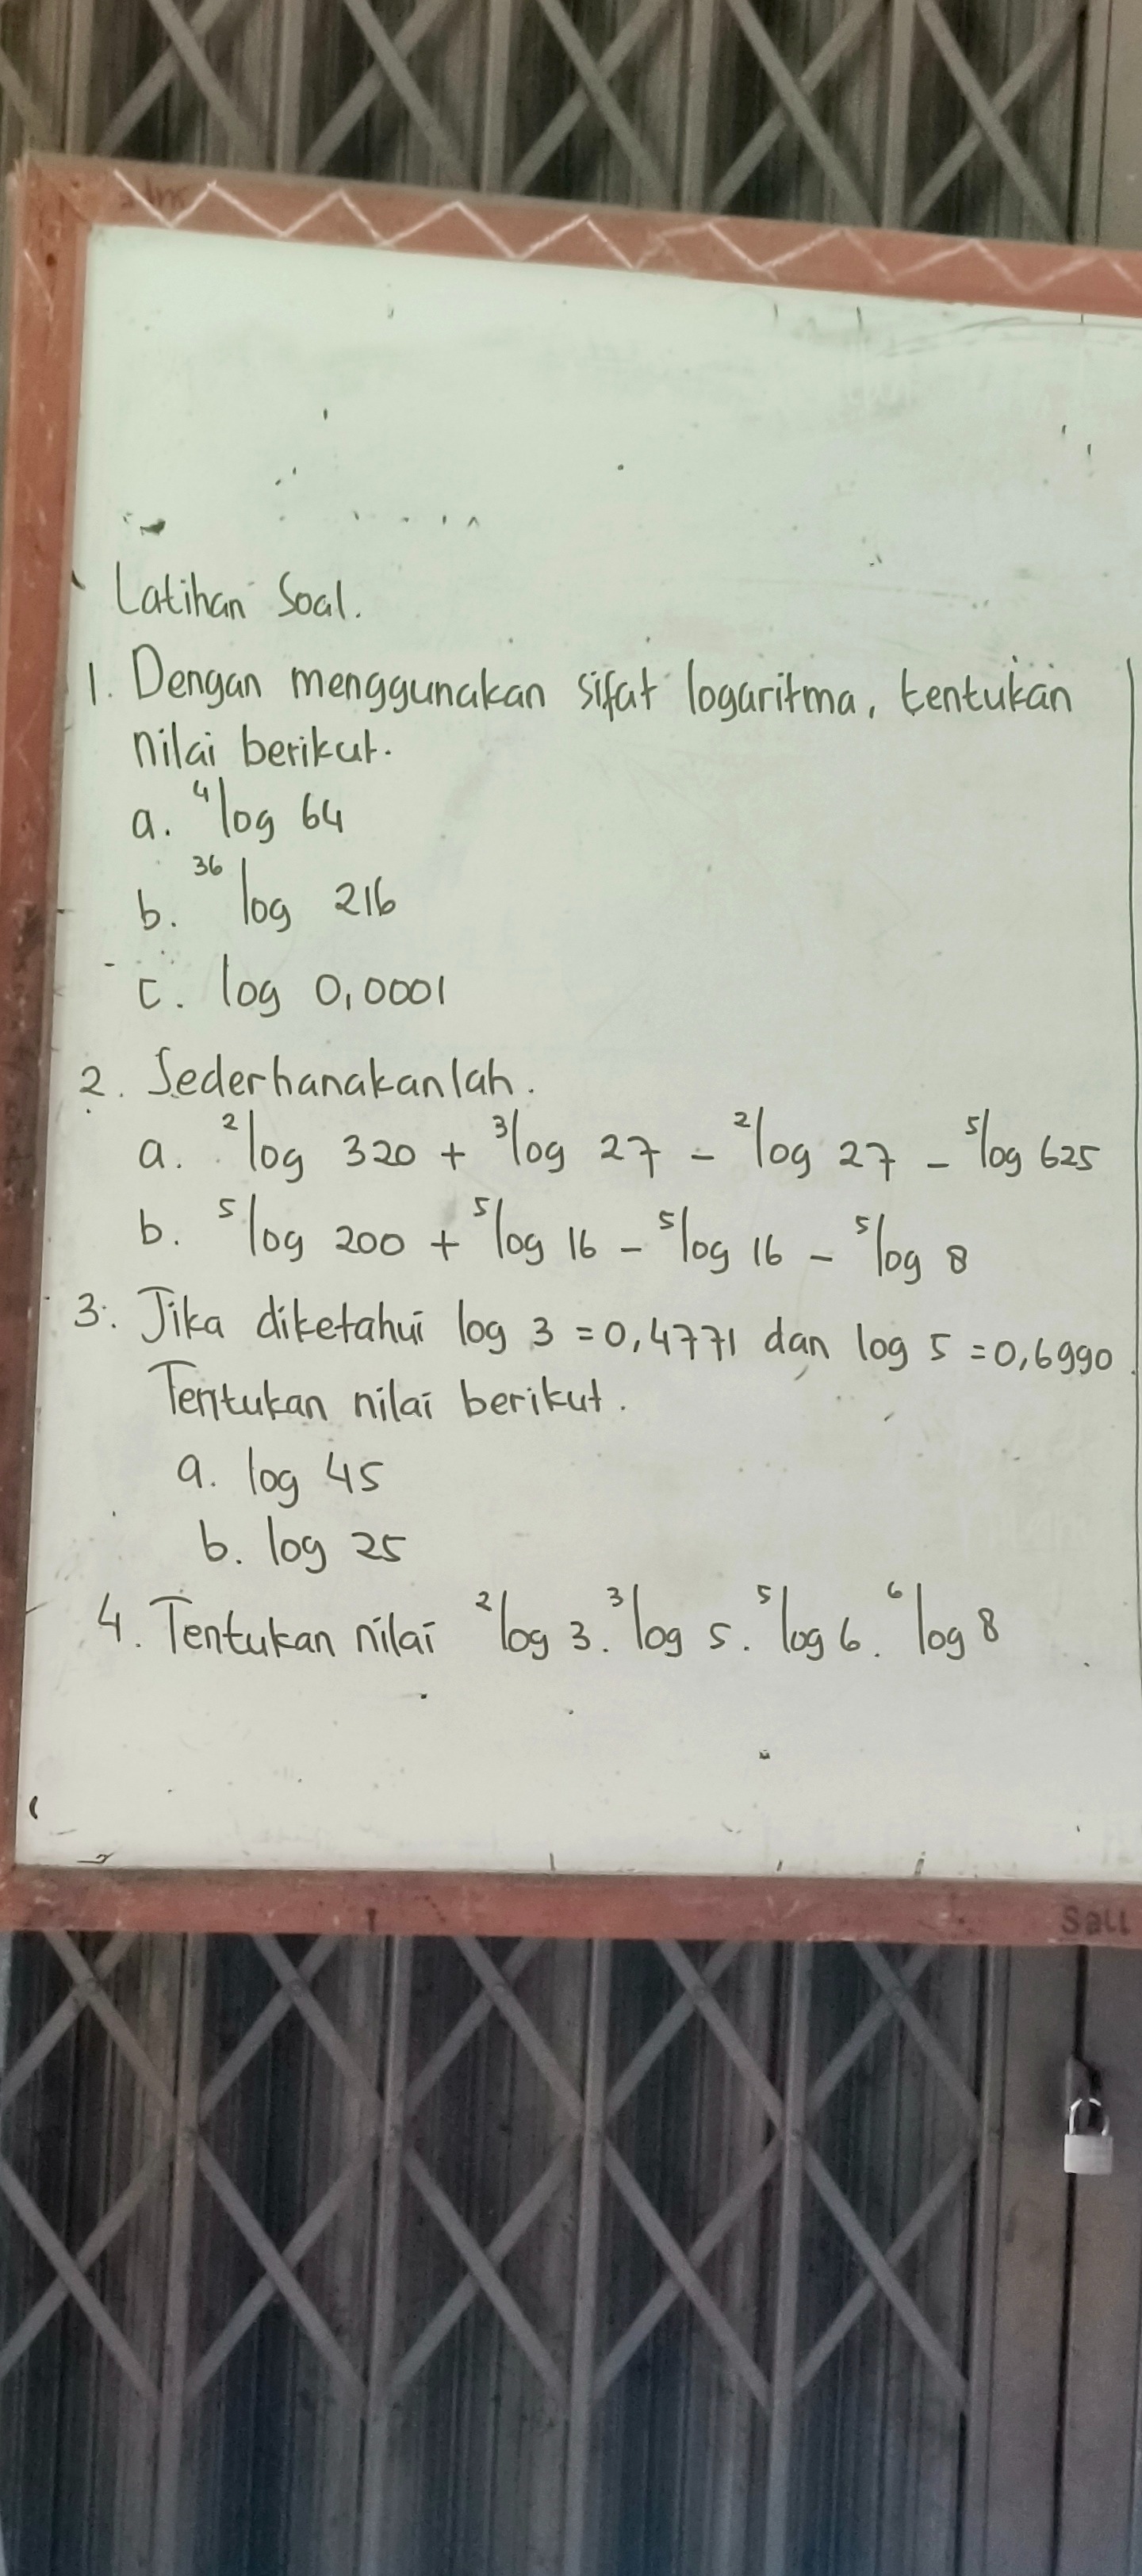 Latihan Soal.
1. Dengan menggunakan sifat logaritma, tentukan
nilai berikut.
a. ⁴log 64
b. ³⁶log 216
c. log 0,0001
2. Sederhanakanlah.
a. ²log 320 + ³log 27 - ²log 27 - ⁵log 625
b. ⁵log 200 + ⁵log 16 - ⁵log 16 - ⁵log 8
3. Jika diketahui log 3 = 0,4771 dan log 5 = 0,6990.
Tentukan nilai berikut.
a. log 45
b. log 25
4. Tentukan nilai ²log 3. ³log 5. ⁵log 6. ⁶log 8